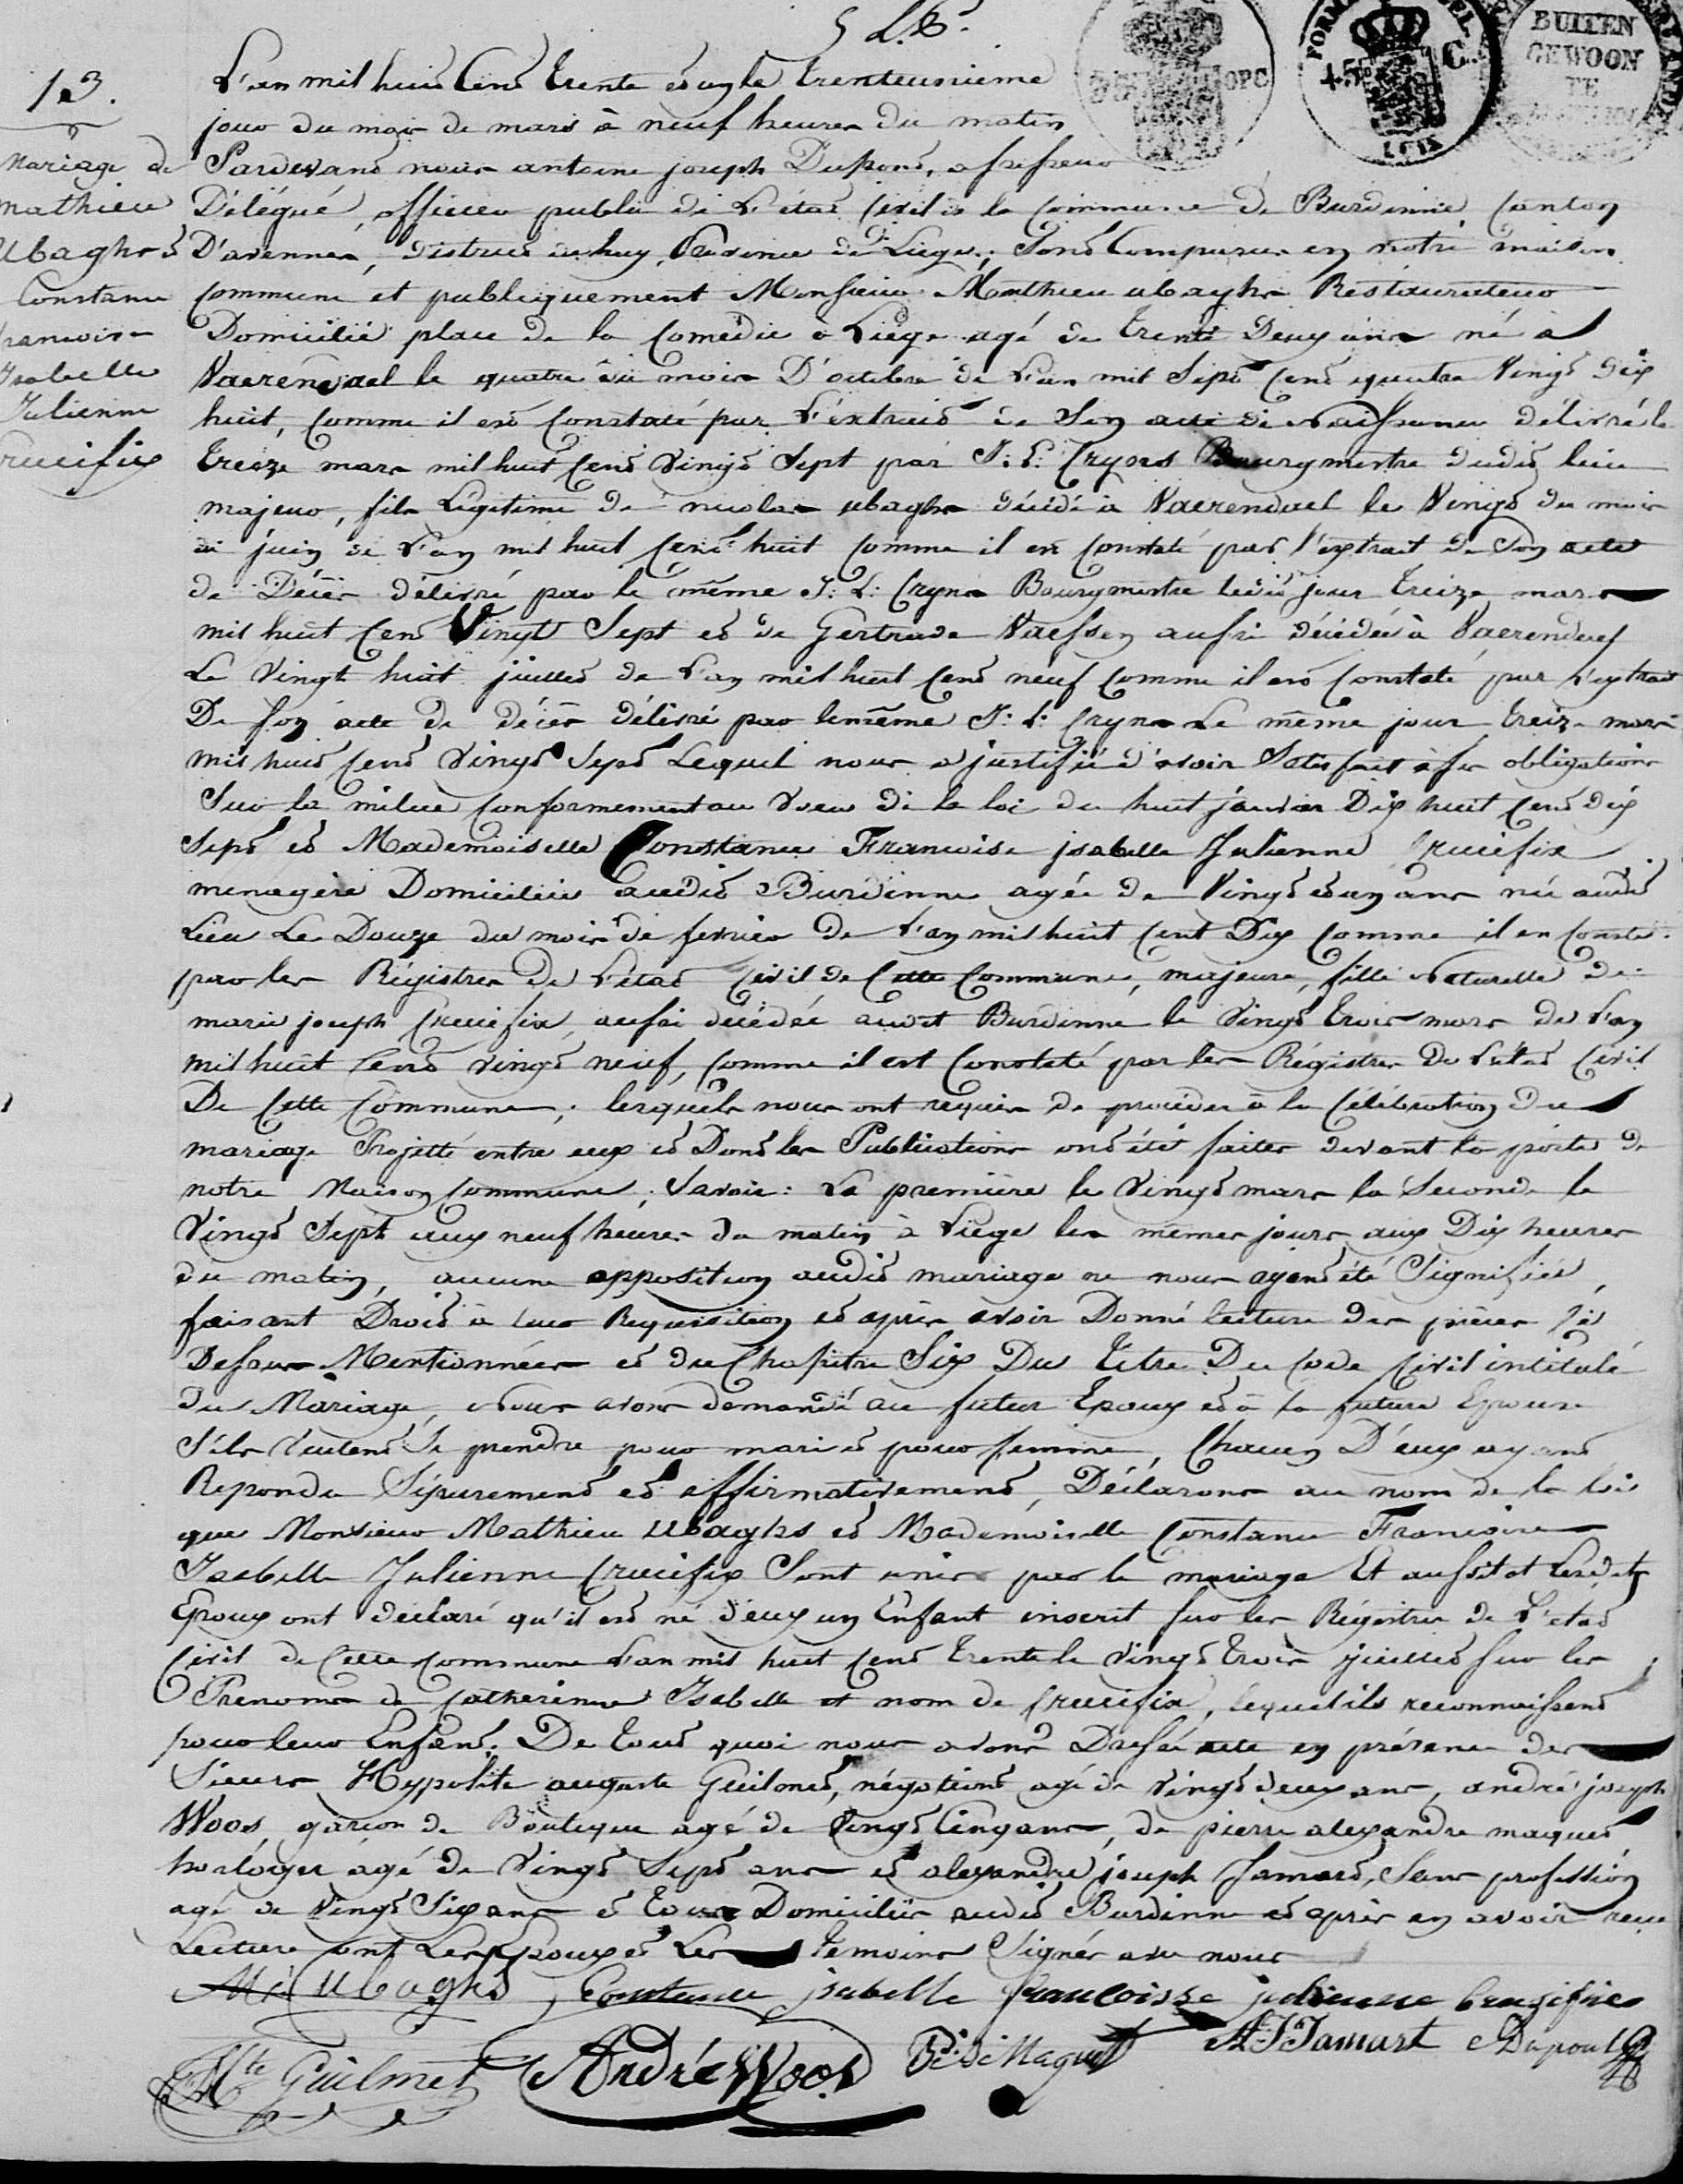 5 L.B.
FORMAAT ZEGEL
45 C.
BUITEN
GEWOON
TE
13.
Mariage de
Mathieu
Ubaghs &
Constance
francoise
Isabelle
Julienne
Crucifix
L'an mil huit Cent trente et un le trenteunieme
jour du mois de mars à neuf heures du matin
Pardevant nous antoine joseph Dupont, assesseur
Délégué, officier public de L'état Civil de la Commune de Burdinne, Canton
D'avennes, district de huy, Province de Liège; Sont Comparus en notre maison
Commune et publiquement Monsieur Mathieu ubaghs Restaurateur
Domicilié place de la Comédie à Liége agé de trente Deux ans né à
Vaerendael le quatre du mois D'octobre de L'an mil Sept Cent quatre Vingt Dix
huit, Comme il est Constaté par L'extrait de Son acte de Naissance délivré le
treize mars mil huit Cent Vingt Sept par J: L: Cryns Bourgmestre dudit lieu
majeur, fils Légitime de nicolas ubaghs décédé à Vaerendael le Vingt du mois
de juin de L'an mil huit Cent huit Comme il est Constaté par l'extrait de Son acte
de Décès délivré par le même J: L: Cryns Bourgmestre ledit jour treize mars
mil huit Cent Vingt Sept et de Gertrude Vaessen aussi décédée à Vaerendael
Le Vingt huit juillet de L'an mil huit Cent neuf Comme il est Constaté par l'extrait
De son acte de décès délivré par le même J: L: Cryns Le même jour treize mars
mil huit Cent Vingt Sept Lequel nous a justifié d'avoir Satisfait à ses obligations
Sur la milice Conformement au voeu de la loi du huit janvier Dix huit Cent dix
Sept et Mademoiselle Constance Francoise jsabelle Julienne Crucifix
menagère Domiciliée audit Burdinne agée de Vingt et un ans née audit
Lieu Le Douze du mois de fevrier de L'an mil huit Cent Dix Comme il en Conste
par les Régistres de L'état Civil de Cette Commune, majeure, fille Naturelle de
marie joseph Crucifix, aussi décédée audit Burdinne le Vingt trois mars de L'an
mil huit Cent vingt neuf, Comme il est Constaté par les Régistres de L'état Civil
De Cette Commune; lesquels nous ont requis de procéder à la Célébration du
mariage Projetté entre eux et Dont les Publications ont été faites devant la porte de
notre Maison Commune; Savoir: La première le Vingt mars la Seconde le
Vingt Sept aux neuf heures du matin à Liége les mêmes jours aux Dix heures
du matin, aucune opposition audit mariage ne nous ayant été Signifiée,
faisant Droit à leur Requisition et après avoir Donné lecture des pièces Ci
Dessus Mentionnées et du Chapitre Six Du titre Du Code Civil intitulé
Du Mariage, Nous avons demandé au futur Epoux et à la future Epouse
S'ils veulent Se prendre pour mari et pour femme, Chacun D'eux ayant
Repondu Séparement et affirmativement, Déclarons au nom de la loi
que Monsieur Mathieu Ubaghs et Mademoiselle Constance Francoise
Isabelle Julienne Crucifix Sont unis par le mariage Et aussitot Lesdits
Epoux ont declaré qu'il est né d'eux un Enfant inscrit sur les Régistres de L'état
Civil de Cette Commune L'an mil huit Cent trente le Vingt trois juillet sur les
Prenoms de Catherinne Isabelle et nom de Crucifix, lequel ils reconnaissent
pour leur Enfant. De tout quoi nous avons Dressé acte en présence des
Sieurs Hypolite auguste Guilmet, négotiant agé de Vingt deux ans, andré joseph
Woos, garçon de Boutique agé de Vingt Cinq ans, de pierre alexandre maquet
horloger agé de Vingt Sept ans et alexandre joseph Jamart, Sans profession
agé de Vingt Six ans et tous Domiciliés audit Burdinne et après en avoir reçu
Lecture ont Les Epoux et Les temoins Signés avec nous
Mt Ubaghs Constance jsabelle francoisse julienne Crusifiés
Hte Guilmet André Woos Maquet A J Jamart Dupont